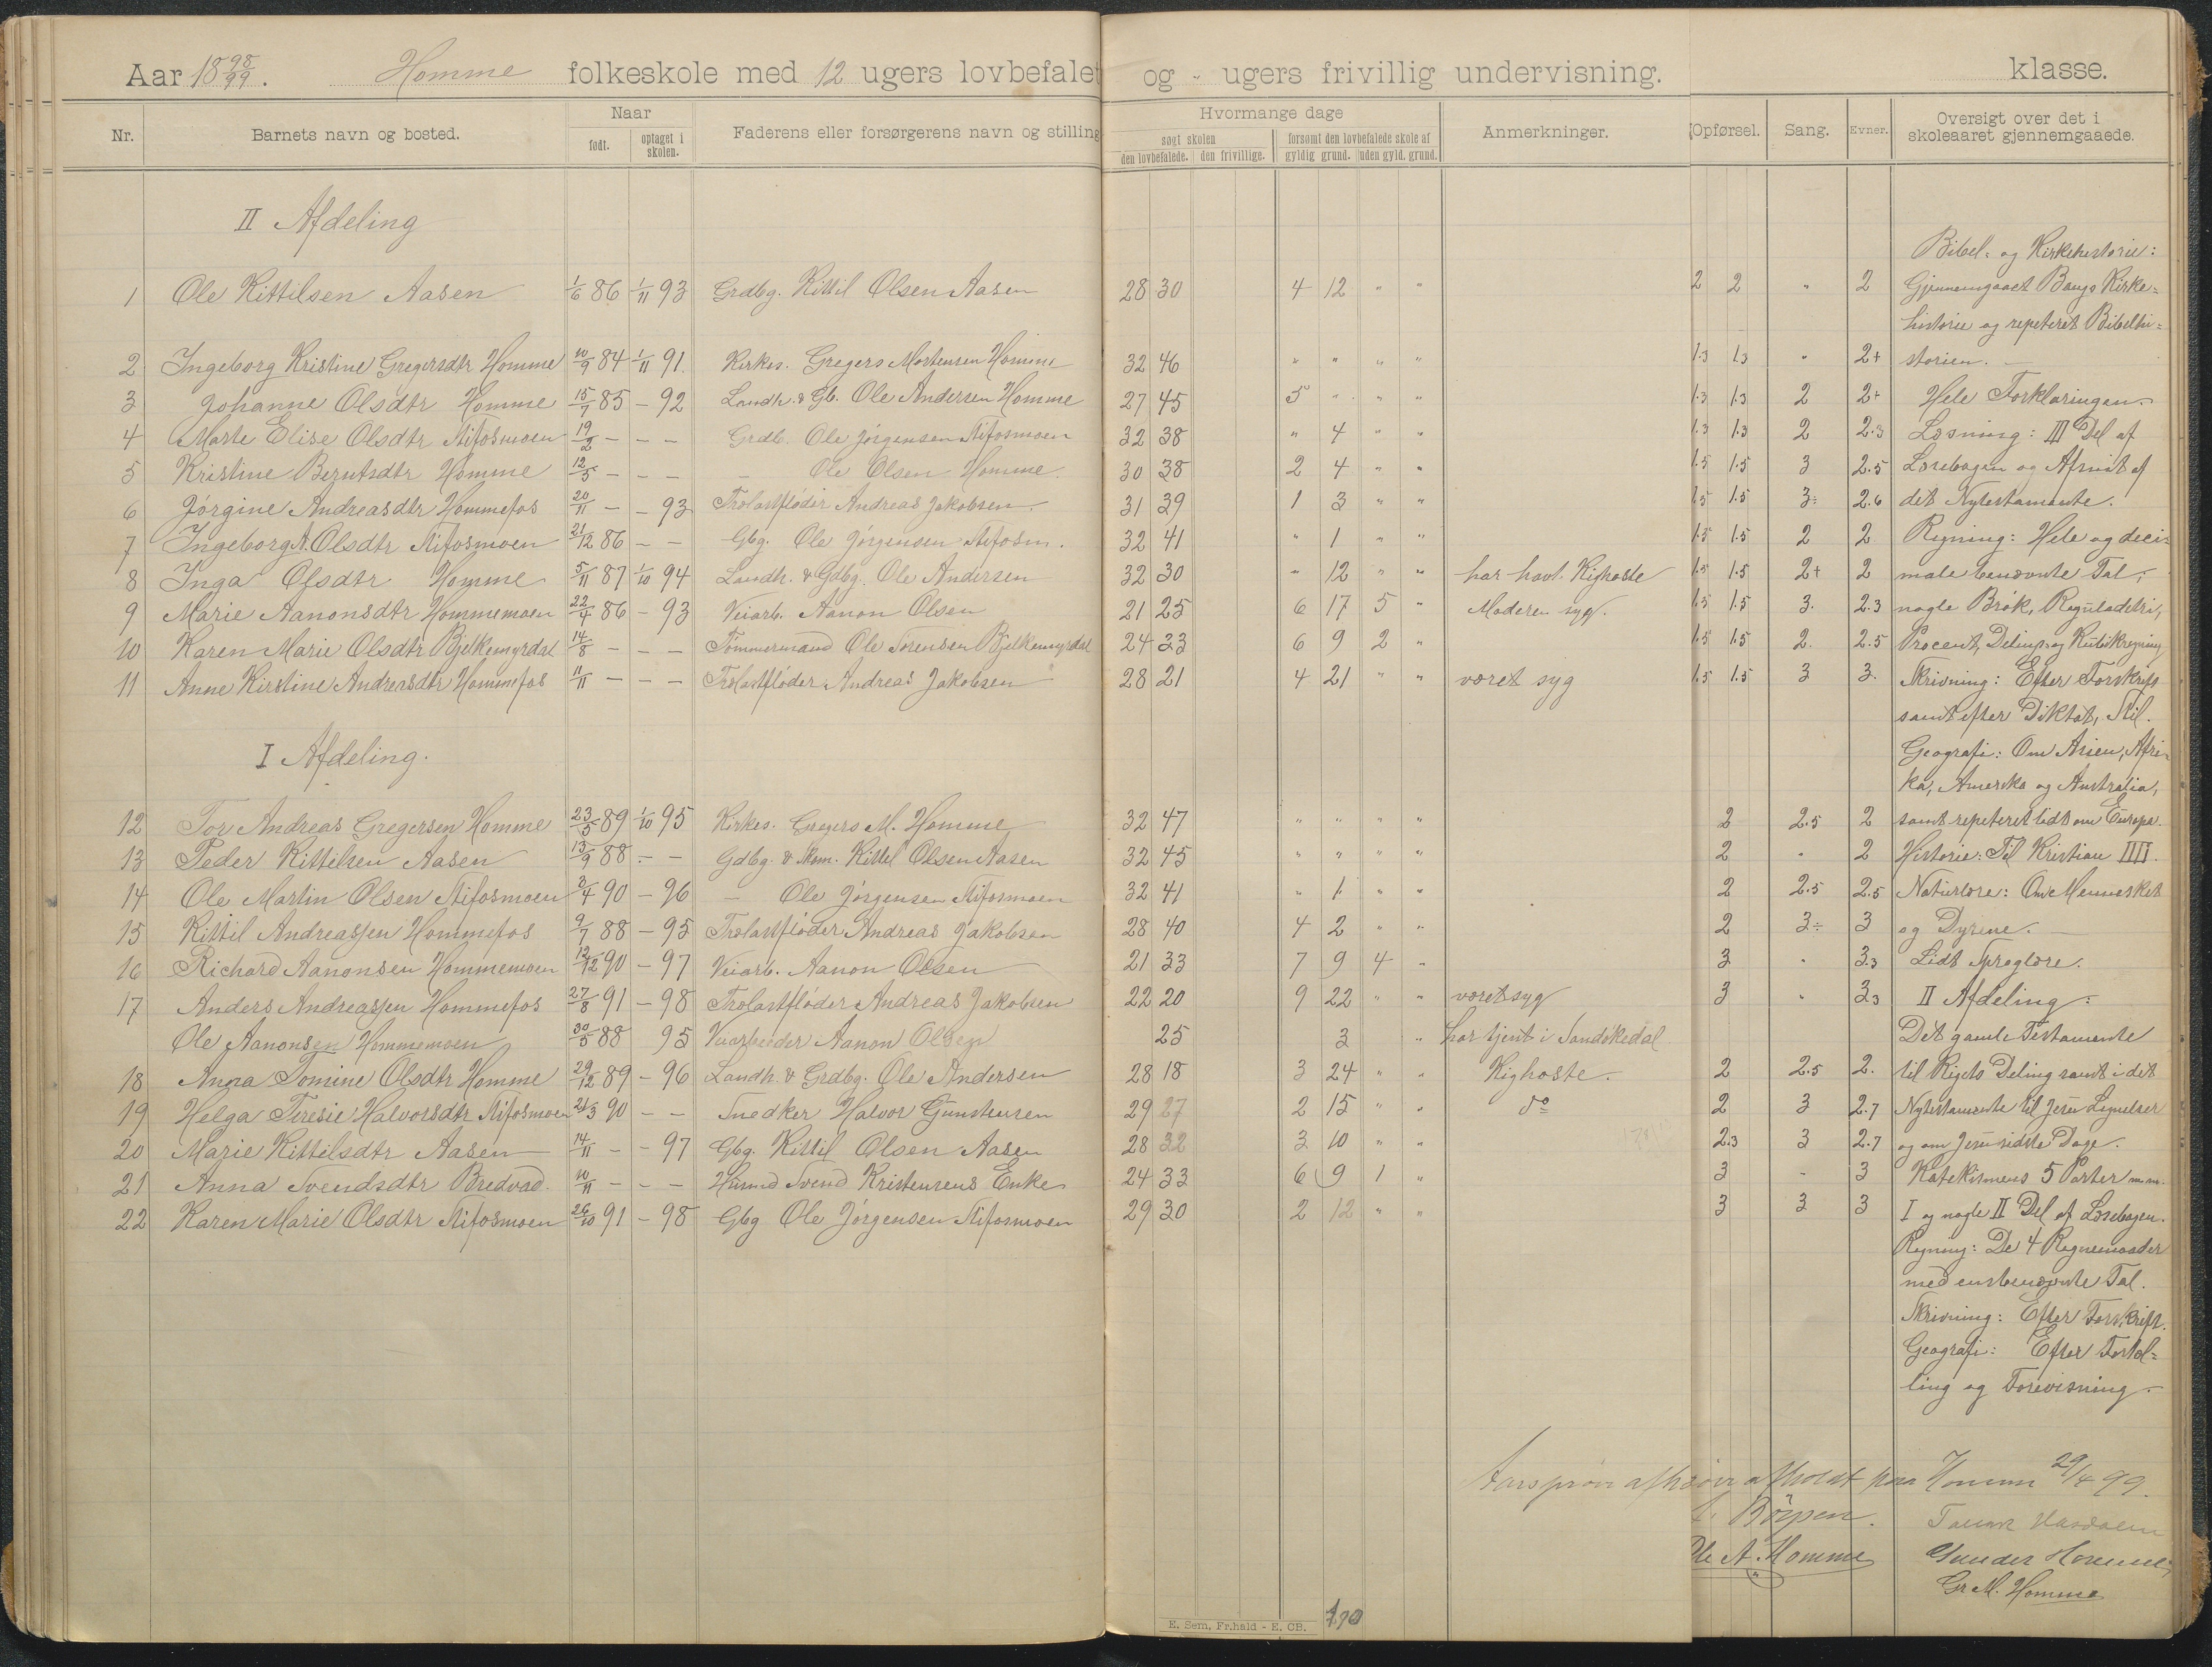 Aar 18 98/99. Homme folkeskole med 12 ugers lovbefalet og - ugers frivillig undervisning. klasse.
Nr. Barnets navn og bosted. Naar født. optaget i skolen. Faderens eller forsørgerens navn og stilling Hvormange dage søgt skolen den lovbefalede. den frivillige. forsømt den lovbefalede skole af gyldig grund. uden gyld. grund. Anmerkninger. Opførsel. Sang. Evner. Oversigt over det i skoleaaret gjennemgaaede.
II Afdeling
1 Ole Kittilsen Aasen 1/6 86 1/11 93 Grdbg. Kittil Olsen Aasen 28 30 4 12 " " 2 2 " 2
2 Ingeborg Kristine Gregersdtr Homme 10/9 84 1/11 91. Kirkes. Gregers Mortensen Homme 32 46 " " " " 1.3 1.3 " 2+
3 Johanne Olsdtr Homme 15/7 85 - 92 Landh. & Gb. Ole Andersen Homme 27 45 5 " " " 1.3 1.3 2 2+
4 Marte Elise Olsdtr Stifosmoen 19/2 - - - Grdb. Ole Jörgensen Stifosmoen 32 38 " 4 " " 1.3 1.3 2 2.3
5 Kristine Berntsdtr Homme 12/5 - - - - Ole Olsen Homme. 30 38 2 4 " " 1.5 1.5 3 2.5
6 Jörgine Andreasdtr Hommefos 20/11 - - 93 Trelastfløder Andreas Jakobsen 31 39 1 3 " " 1.5 1.5 3÷ 2.6
7 Ingeborg A. Olsdtr Stifosmoen 21/12 86 - - Gbg. Ole Jörgensen Stifosm. 32 41 " 1 " " 1.5 1.5 2 2
8 Inga Olsdtr Homme 5/11 87 1/10 94 Landh. & Gdbg. Ole Andersen 32 30 " 12 " " har havt Kighoste 1.5 1.5 2+ 2
9 Marie Aanonsdtr Hommemoen 22/4 86 - 93 Veiarb. Aanon Olsen 21 25 6 17 5 " Moderen syg. 1.5 1.5 3. 2.3
10 Karen Marie Olsdtr Bjelkemyrdal 14/8 - - - Tømmermand Ole Sørensen Bjelkemyrdal 24 23 6 9 2 " 1.5 1.5 2. 2.5
11 Anne Kirstine Andreasdtr Hommefos 11/11 - - - Trelastfløder Andreas Jakobsen 28 21 4 21 " " været syg 1.5 1.5 3 3.
I Afdeling.
12 Tor Andreas Gregersen Homme 23/5 89 1/10 95 Kirkes. Gregers M. Homme 32 47 " " " " 2 2.5 2
13 Peder Kittilsen Aasen 13/9 88 - - Gdbg. & Skom. Kittil Olsen Aasen 32 45 " " " " 2 " 2
14 Ole Martin Olsen Stifosmoen 3/4 90 - 96 - Ole Jörgensen Stifosmoen 32 41 " 1 " " 2 2.5 2.5
15 Kittil Andreassen Hommefos 9/7 88 - 95 Trelastfløder Andreas Jakobsen 28 40 4 2 " " 2 3÷ 3
16 Richard Aanonsen Hommemoen 12/12 90 - 97 Veiarb. Aanon Olsen 21 33 7 9 4 " 3 " 3.3
17 Anders Andreassen Hommefos 27/8 91 - 98 Trelastfløder Andreas Jakobsen 22 20 9 22 " " været syg 3 " 3.3
Ole Aanonsen Hommemoen 30/5 88 95 Veiarbeider Aanon Olsen 25 3 " har tjent i Sandökedal
18 Anna Tomine Olsdtr Homme 29/12 89 - 96 Landh. & Grdbg. Ole Andersen 28 18 3 24 " " Kighoste. 2 2.5 2.
19 Helga Teresie Halvorsdtr Stifosmoen 24/3 90 - - Snedker Halvor Gunstensen 29 27 2 15 " " do 2 3 2.7
20 Marie Kittilsdtr Aasen 14/11 - - 97 Gbg. Kittil Olsen Aasen 28 32 3 10 " " 2.3 3 2.7
21 Anna Svendsdtr Bredvad. 10/11 - - - Husmd Svend Kristensens Enke 24 33 6 9 1 " 3 - 3
22 Karen Marie Olsdtr Stifosmoen 26/10 91 - 98 Gbg Ole Jörgensen Stifosmoen 29 30 2 12 " " 3 3 3
Bibel- og Kirkehistorie:
Gjennemgaaet Bangs Kirke-
historie og repeteret Bibelhi-
storien. -
Hele Forklaringen.
Læsning: III Del af
Læsebogen og Afsnit af
det Nytestamente.
Regning: Hele og deci-
male benævnte Tal,
nogle Brök, Reguladetri,
Procent, Delings og Kubikregning
Skrivning: Efter Forskrift
samt efter Diktat, Stil.
Geografi: Om Asien, Afri-
ka, Amerika og Australia,
samt repeteret lidt om Europa.
Historie: Til Kristian IIII.
Naturlære: Om Mennesket
og Dyrene. -
Lidt Sproglære.
II Afdeling:
Det gamle Testamente
til Rigets Deling samt i det
Nytestamente til Jesu Lignelser
og om Jesu sidste Dage.
Katekismens 5 Parter m.m.
I og nogle II Del af Læsebogen.
Regning: De 4 Regnemaader
med enstbenævnte Tal.
Skrivning: Efter Forskrift.
Geografi: Efter Fortæl-
ling og Forevisning. -
Aarsprøve afholdt paa Homme 29/4 99.
Ole A. Homme Gunder Homme
Gr. M. Homme
E. Sem, Fr.hald - E. CB. 170